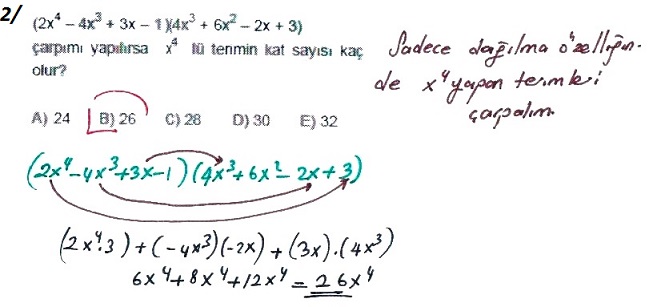 2/
(2x⁴ – 4x³ + 3x – 1)(4x³ + 6x² – 2x + 3)
çarpımı yapılırsa x⁴ lü tenmin kat sayısı kaç
olur?
A) 24 B) 26 C) 28 D) 30 E) 32
Sadece dağılma özelliğin-
de x⁴ yapan termleri
çarpalım.
(2x⁴-4x³+3x-1)(4x³+6x²-2x+3)
(2x⁴.3)+(-4x³)(-2x)+(3x).(4x³)
6x⁴+8x⁴+12x⁴=26x⁴